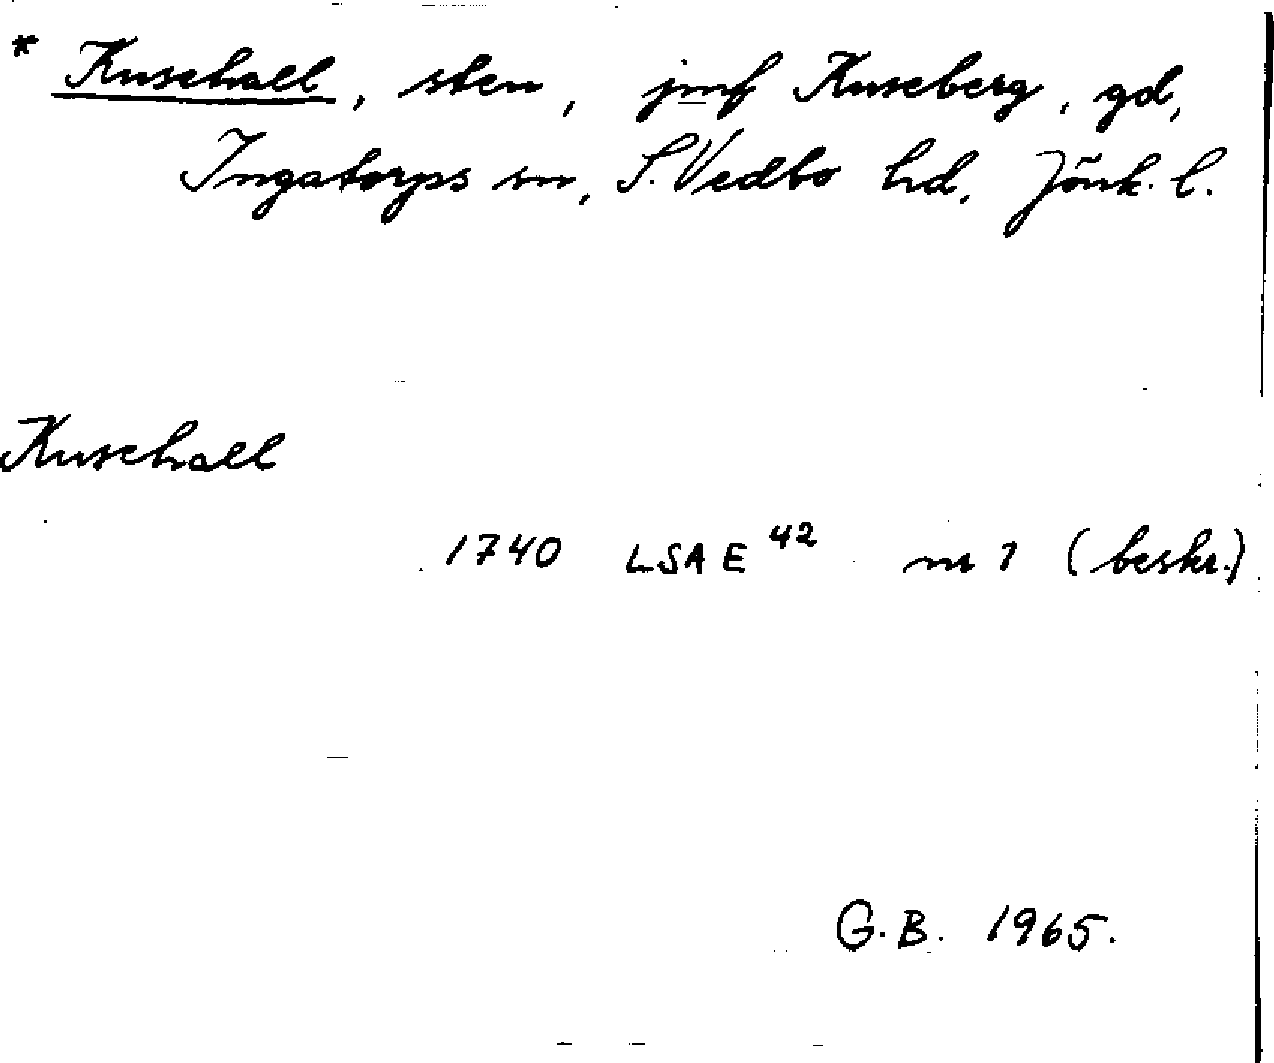 * Kusehall, sten, jmf Kuseberg, gd,
Ingatorps sn, S. Vedbo hd, Jönk. l.
Kusehall
1740 LSA E 42 nr 1 (beskr.)
G.B. 1965.